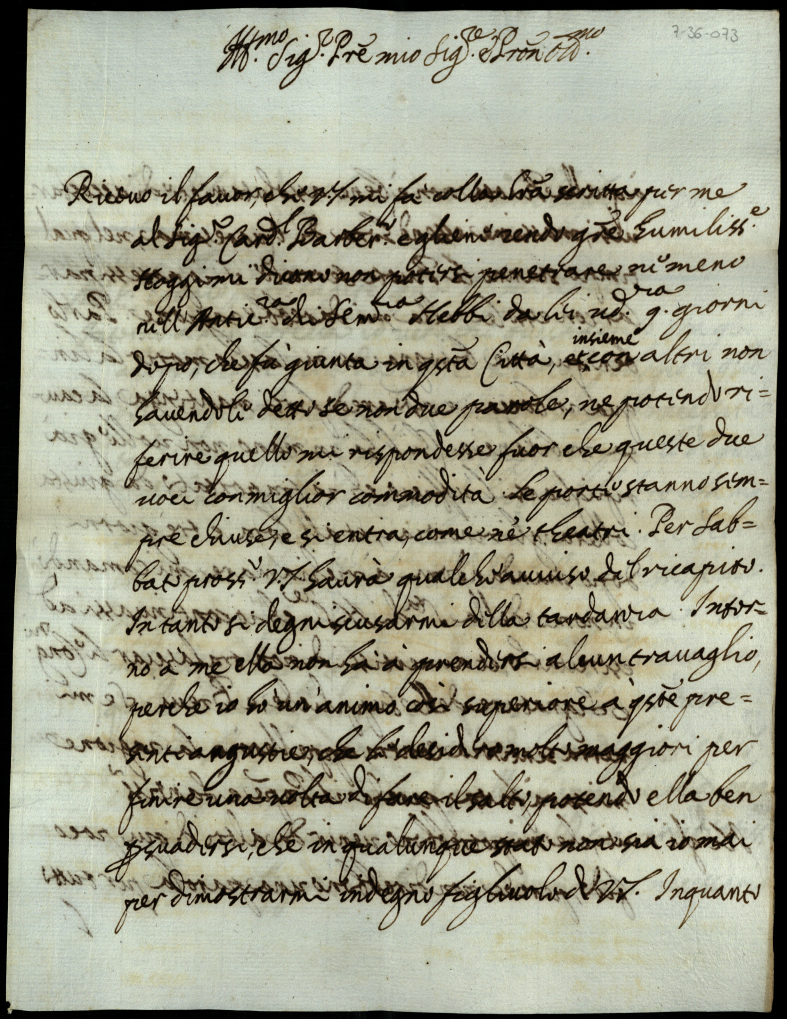 7-36-073
Ill.mo Sig.r P̃re mio Sig.re e P̃ron Co͠l.mo
Ricevo il favor che V.S. mi fa colla l̃ra scritta per me
al Sig.r Card.l Barber.o e gliene rendo gr̃e humiliss.e
Hoggi mi dicono non potersi penetrare nè meno
nell' Antic.ra di Sem.ria Hebbi da lei ud.ria 9. giorni
dopo, che fu giunta in q̃sta Città, et con insieme altri non
havendoli detto se non due parole, ne potendo ri=
ferire quello mi rispondesse fuor che queste due
voci con miglior commodità. Le porte stanno sem=
pre chiuse, e si entra, come ne' theatri. Per Sab=
bato pross.o V.S. havrà qualche avviso del ricapito.
In tanto si degni scusarmi della tardanza. Intor=
no a me ella non ha à prendersi alcun travaglio,
perche io ho un'animo così superiore à q̃ste pre=
senti angustie, che le desidero molto maggiori per
finire una volta di fare il salto, potendo ella ben
p̱suadersi, che in qualunque stato non sia io mai
per dimostrarmi indegno figliuolo di V.S. Inquanto